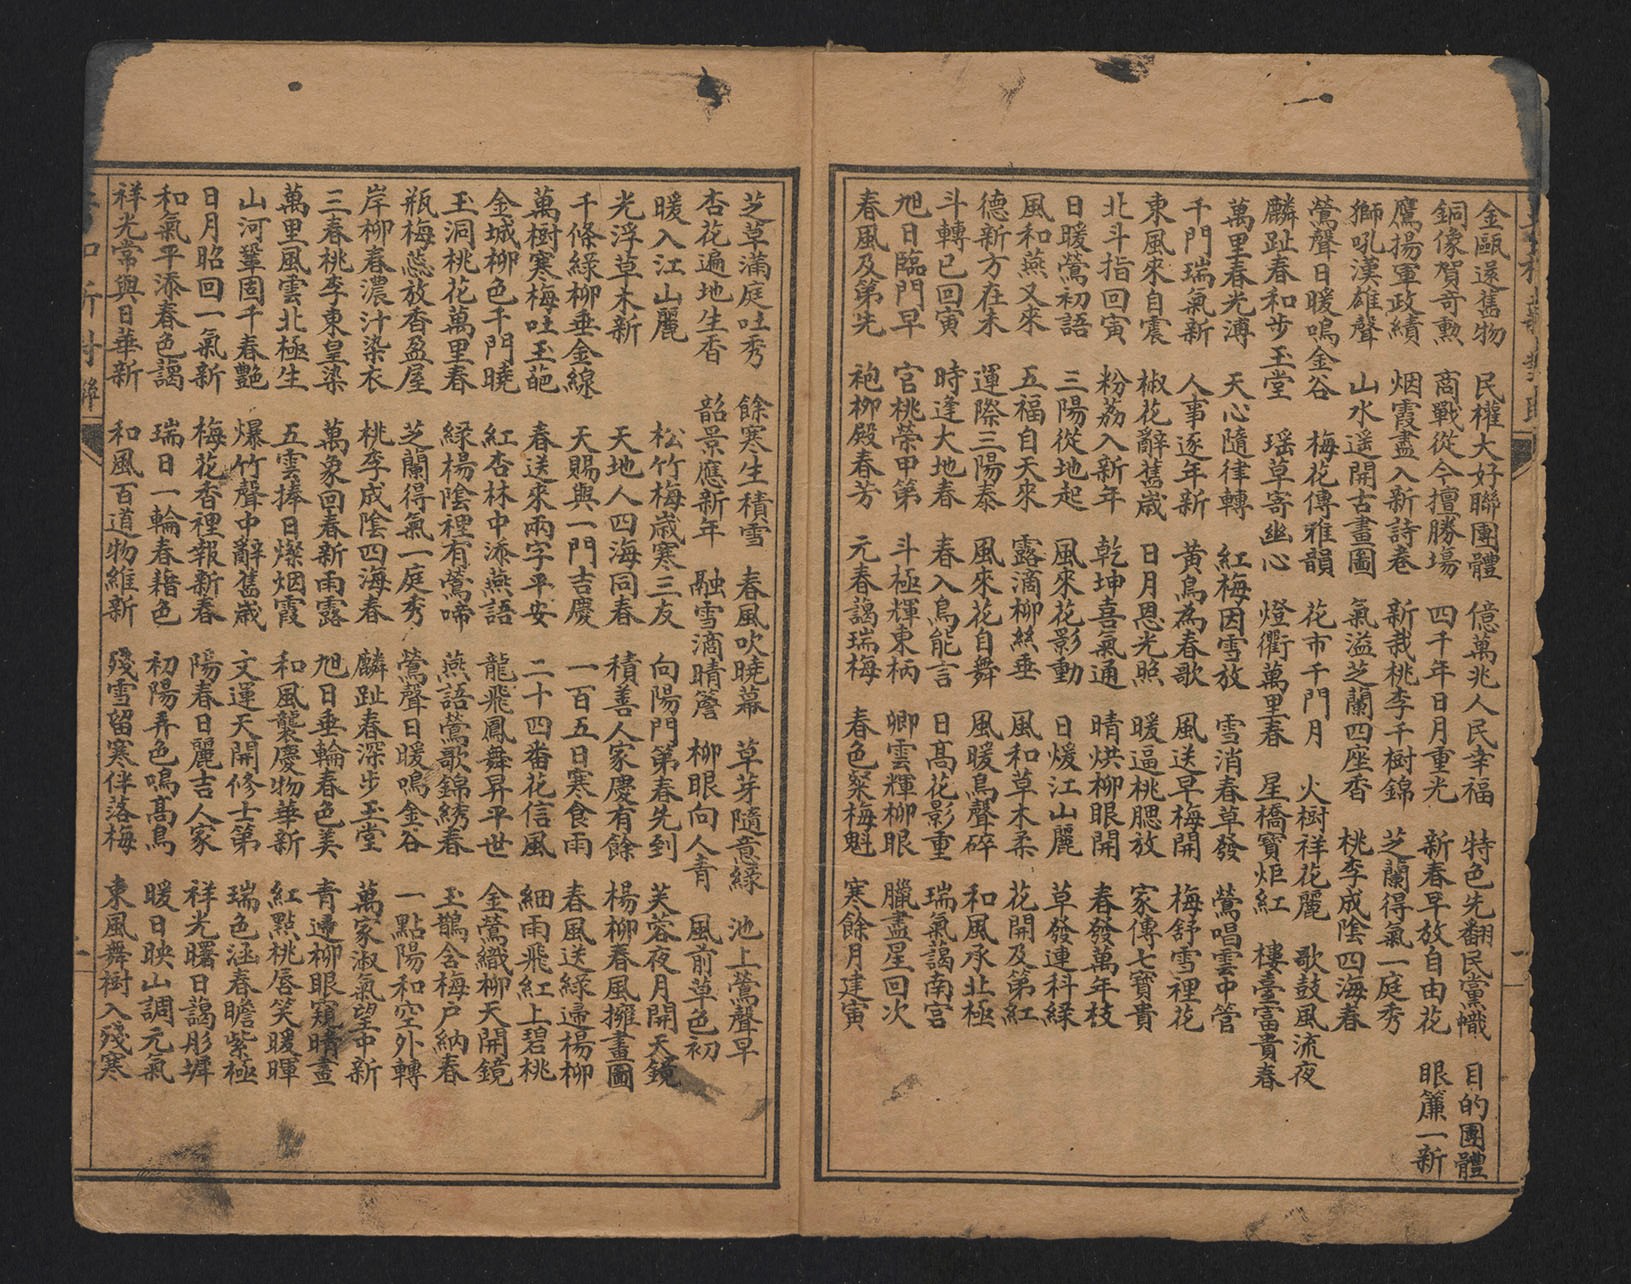 金甌還舊物 民權大好聯團體 億萬兆人民幸福 特色先翻民黨幟 目的團體
銅像賀奇勲 商戰從今擅勝塲 四千年日月重光 新春早放自由花 眼簾一新
鷹揚軍政績 烟霞盡入新詩卷 新栽桃李千樹錦 芝蘭得氣一庭秀
獅吼漢雄聲 山水遥開古畫圖 氣溢芝蘭四座香 桃李成陰四海春
鶯聲日暖鳴金谷 梅花傳雅韻 花市千門月 火樹祥花麗 歌鼓風流夜
麟趾春和步玉堂 瑶草寄幽心 燈衢萬里春 星橋寳炬紅 樓臺富貴春
萬里春光溥 天心隨律轉 紅梅因雪放 雪消春草發 鶯唱雲中管
千門瑞氣新 人事逐年新 黄鳥為春歌 風送早梅開 梅舒雪裡花
東風來自震 椒花辭舊歳 日月恩光照 暖逼桃腮放 家傳七寳貴
北斗指回寅 粉荔入新年 乾坤喜氣通 晴烘柳眼開 春發萬年枝
日暖鶯初語 三陽從地起 風來花影動 日煖江山麗 草發連科緑
風和燕又來 五福自天來 露滴柳絲垂 風和草木柔 花開及第紅
德新方在木 運際三陽泰 風來花自舞 風暖鳥聲碎 和風承北極
斗轉已回寅 時逢大地春 春入鳥能言 日髙花影重 瑞氣藹南宫
旭日臨門早 官桃榮甲第 斗極輝東柄 卿雲輝柳眼 臘盡星回次
春風及第先 袍柳殿春芳 元春藹瑞梅 春色粲梅魁 寒餘月建寅
芝草滿庭吐秀 餘寒生積雪 春風吹曉幕 草芽隨意緑 池上鶯聲早
杏花遍地生香 韶景應新年 融雪滴晴簷 柳眼向人青 風前草色初
暖入江山麗 松竹梅歳寒三友 向陽門第春先到 芙蓉夜月開天鏡
光浮草木新 天地人四海同春 積善人家慶有餘 楊柳春風擁畫圖
千條緑柳垂金線 天賜與一門吉慶 一百五日寒食雨 春風送緑歸楊柳
萬樹寒梅吐玉葩 春送來兩字平安 二十四番花信風 細雨飛紅上碧桃
金城柳色千門曉 紅杏林中添燕語 龍飛鳳舞昇平世 金鶯織柳天開鏡
玉洞桃花萬里春 緑楊陰裡有鶯啼 燕語鶯歌錦綉春 玉鵲含梅戸納春
瓶梅蕊放香盈屋 芝蘭得氣一庭秀 鶯聲日暖鳴金谷 一點陽和空外轉
岸柳春濃汁染衣 桃李成陰四海春 麟趾春深步玉堂 萬家淑氣望中新
三春桃李東皇染 萬象回春新雨露 旭日垂輪春色美 青邊柳眼窺晴晝
萬里風雲北極生 五雲捧日燦烟霞 和風襲慶物華新 紅點桃唇笑暖暉
山河鞏固千春艷 爆竹聲中辭舊歳 文運天開修士第 瑞色涵春瞻紫極
日月昭回一氣新 梅花香裡報新春 陽春日麗吉人家 祥光曙日藹彤墀
和氣平添春色藹 瑞日一輪春藉色 初陽弄色鳴髙鳥 暖日映山調元氣
祥光常與日華新 和風百道物維新 殘雪留寒伴落梅 東風舞樹入殘寒